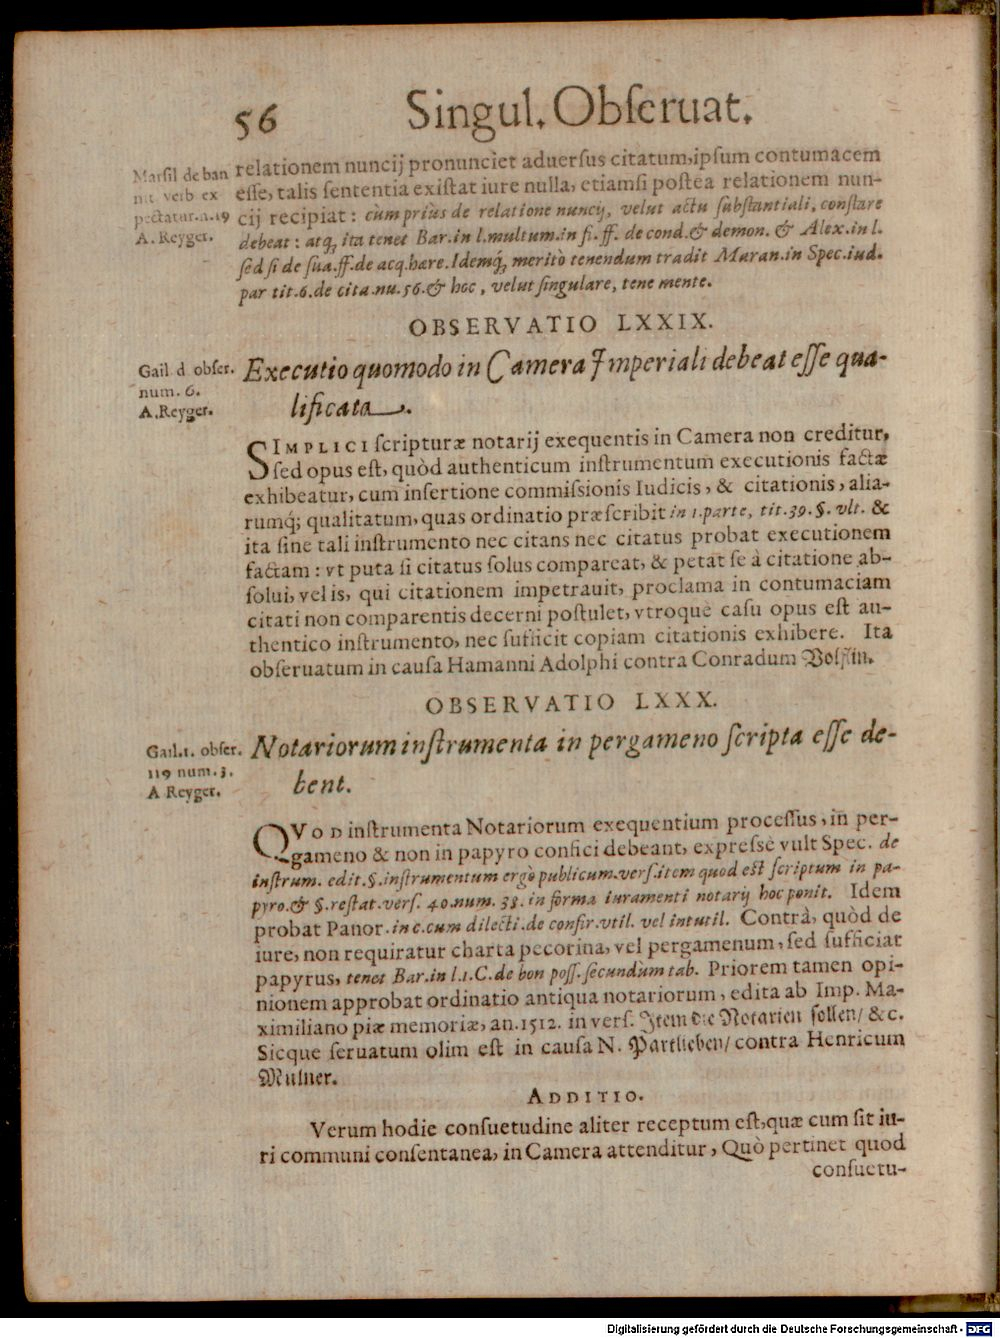 56 Singul. Obſeruat.
Marſil de ban
nit verb ex
pectatur. n. 19
A. Reyger.
relationem nuncij pronunciet aduerſus citatum, ipſum contumacem
eſſe, talis ſententia exiſtat iure nulla, etiamſi poſtea relationem nun-
cij recipiat: cùm priùs de relatione nuncij, velut actu ſubſtantiali, conſtare
debeat: atq; ita tenet Bar. in l. multum. in fi. ff. de cond. & demon. & Alex. in l.
ſed ſi de ſua. ff. de acq. hære. Idemq́; meritò tenendum tradit Maran. in Spec. iud.
par tit. 6. de cita. nu. 56. & hoc, velut ſingulare, tene mente.
OBSERVATIO LXXIX.
Gail d obſer.
num. 6.
A. Reyger.
Executio quomodo in Camera Imperiali debeat eſſe qua-
lificata.
SIMPLICI ſcripturæ notarij exequentis in Camera non creditur,
ſed opus eſt, quòd authenticum inſtrumentum executionis factæ
exhibeatur, cum inſertione commiſsionis Iudicis, & citationis, alia-
rumq́; qualitatum, quas ordinatio præſcribit in 1. parte, tit. 39. §. vlt. &
ita ſine tali inſtrumento nec citans nec citatus probat executionem
factam: vt puta ſi citatus ſolus compareat, & petat ſe à citatione ab-
ſolui, vel is, qui citationem impetrauit, proclama in contumaciam
citati non comparentis decerni poſtulet, vtroquè caſu opus eſt au-
thentico inſtrumento, nec ſufficit copiam citationis exhibere. Ita
obſeruatum in cauſa Hamanni Adolphi contra Conradum Volſtin.
OBSERVATIO LXXX.
Gail. 1. obſer.
119 num. 3.
A Reyger.
Notariorum inſtrumenta in pergameno ſcripta eſſe de-
bent.
QVOD inſtrumenta Notariorum exequentium proceſſus, in per-
gameno & non in papyro confici debeant, expreſsè vult Spec. de
inſtrum. edit. §. inſtrumentum ergò publicum. verſ. item quod eſt ſcriptum in pa-
pyro. & §. reſtat. verſ. 40. num. 33. in forma iuramenti notarij hoc ponit. Idem
probat Panor. in c. cum dilecti. de confir. vtil. vel intutil. Contrà, quòd de
iure, non requiratur charta pecorina, vel pergamenum, ſed ſufficiat
papyrus, tenet Bar. in l. 1. C. de bon poſſ. ſecundùm tab. Priorem tamen opi-
nionem approbat ordinatio antiqua notariorum, edita ab Imp. Ma-
ximiliano piæ memoriæ, an. 1512. in verſ. Item die Notarien ſollen/ &c.
Sicque ſeruatum olim eſt in cauſa N. Partlieben/ contra Henricum
Mulner.
ADDITIO.
Verum hodie conſuetudine aliter receptum eſt, quæ cum ſit iu-
ri communi conſentanea, in Camera attenditur, Quò pertinet quod
conſuetu-
Digitalisierung gefördert durch die Deutsche Forschungsgemeinschaft - DFG